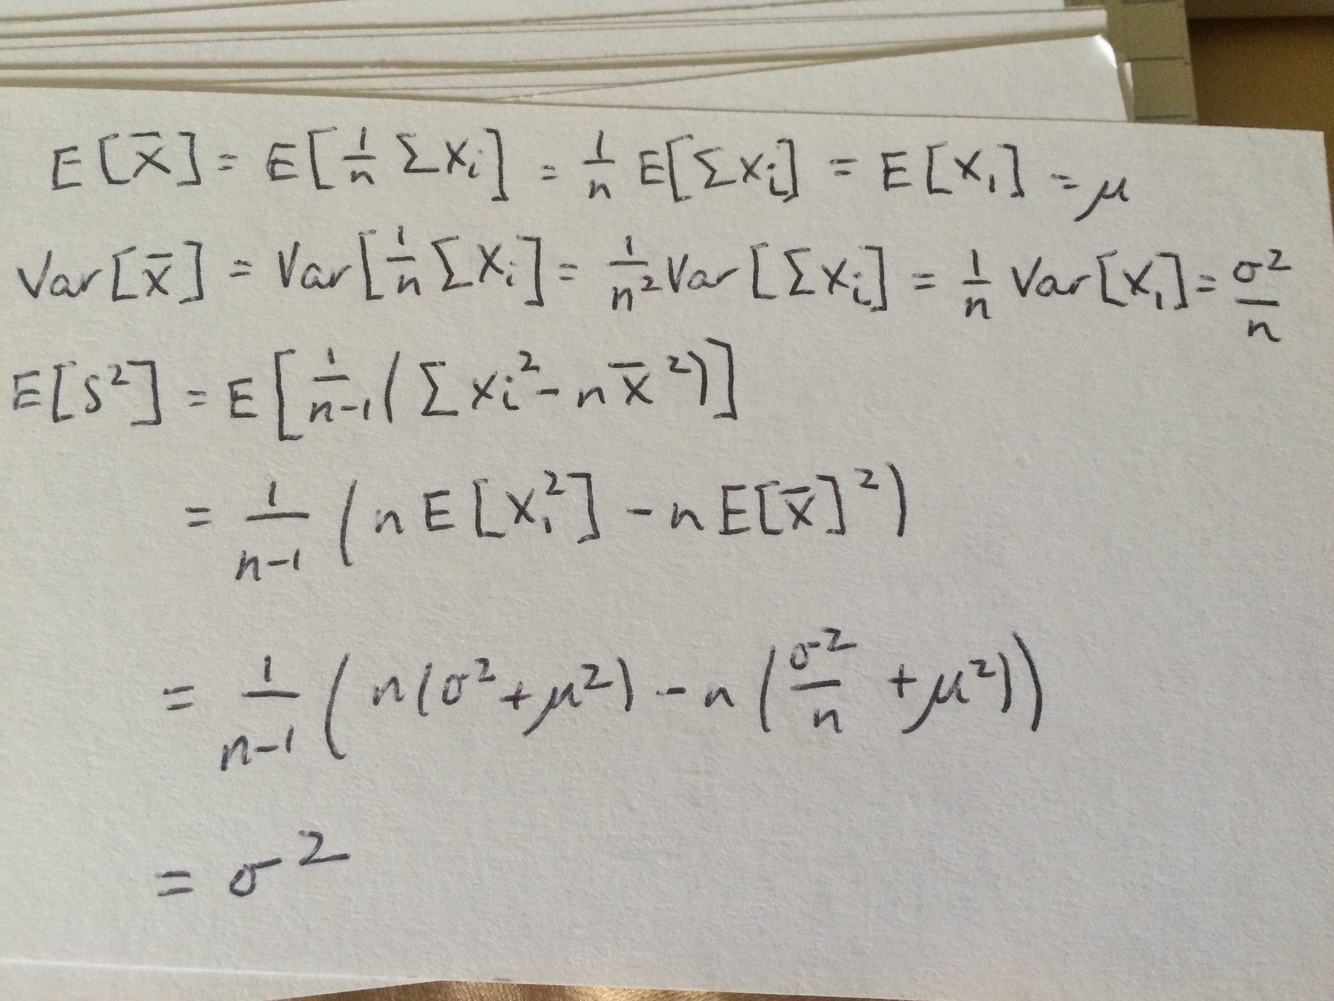 E[X̄] = E[1/n ΣXᵢ] = 1/n E[ΣXᵢ] = E[X₁] = μ
Var[X̄] = Var[1/n ΣXᵢ] = 1/n² Var[ΣXᵢ] = 1/n Var[X₁] = σ²/n
E[S²] = E[1/n-1 (ΣXᵢ² - nX̄²)]
= 1/n-1 (nE[X₁²] - nE[X̄]²)
= 1/n-1 (n(σ²+μ²) - n(σ²/n + μ²))
= σ²